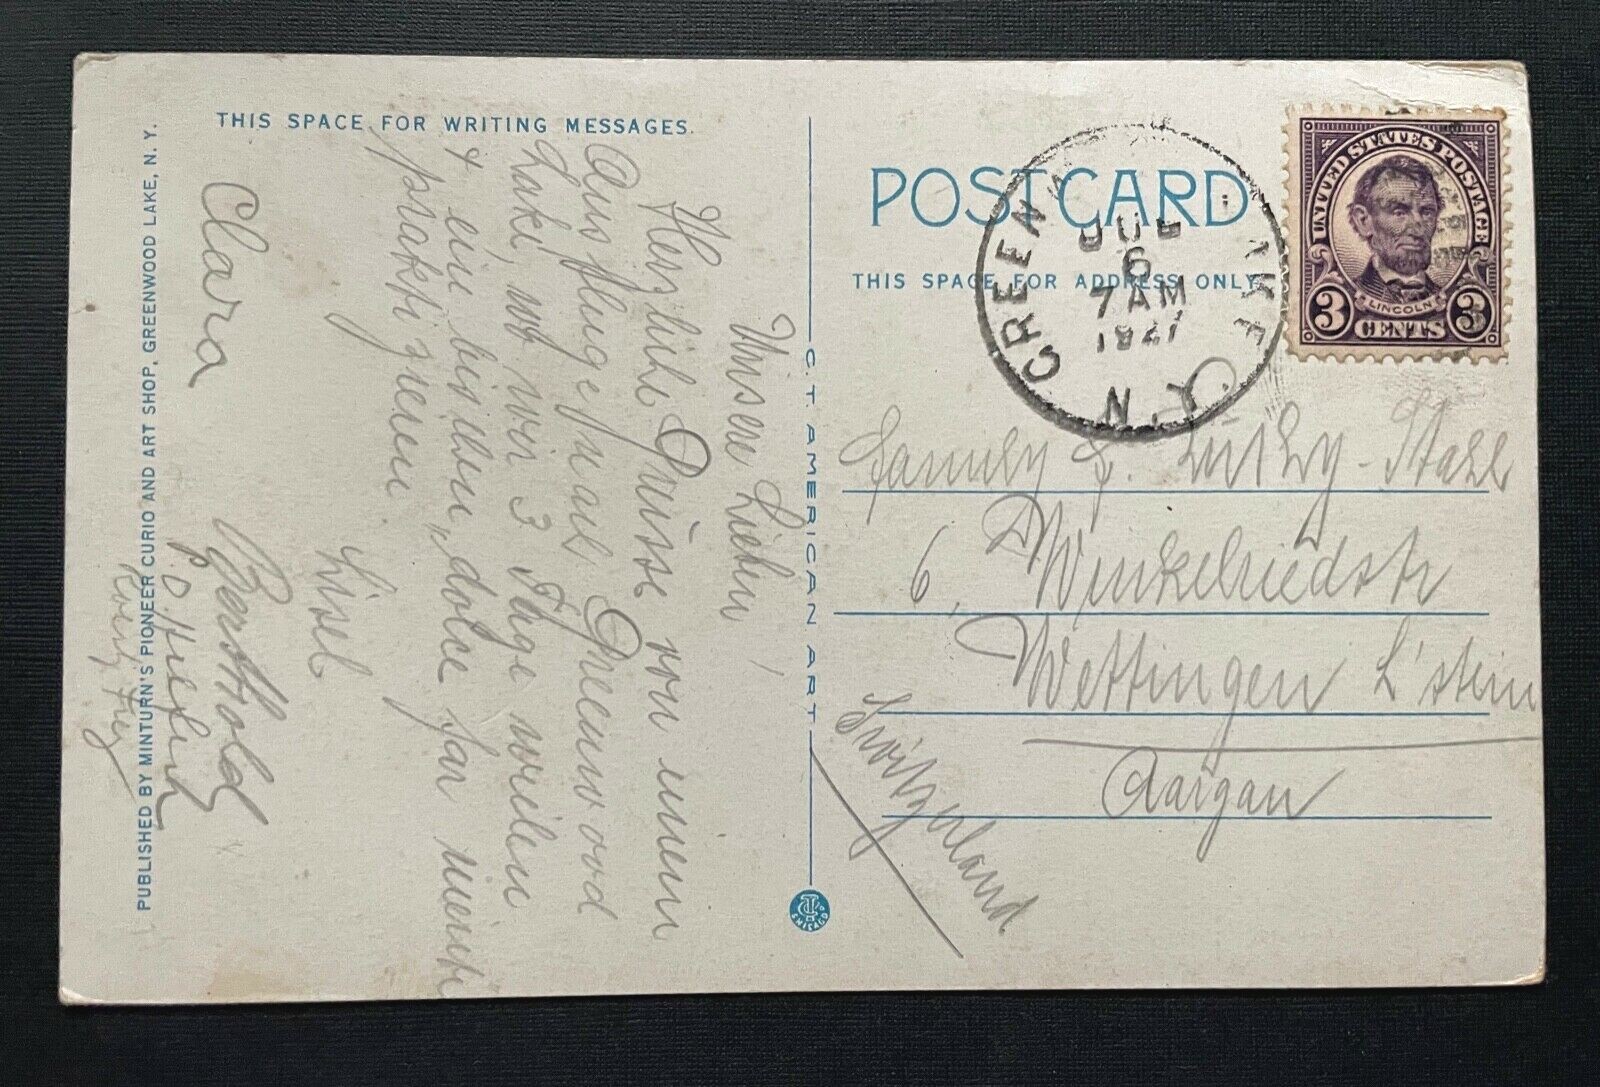 THIS SPACE FOR WRITING MESSAGES.
Unsere Lieben!
Herzliche Grüsse von einem
Ausfluge nach Greenwood
Lake, wo wir 3 Tage weilen
+ ein bisschen „dolce far niente
praktizieren.
Lisel
Clara Berthold
PUBLISHED BY MINTURN'S PIONEER CURIO AND ART SHOP, GREENWOOD LAKE, N. Y.
C. T. AMERICAN ART
CHICAGO
POST CARD
THIS SPACE FOR ADDRESS ONLY
GREENW LAKE N.Y.
JUL
6
7 AM
1927
UNITED STATES POSTAGE
LINCOLN
3 CENTS 3
Family F. Lüthy-Stahl
6, Winkelriedstr
Wettingen L'stein
Aargau
Switzerland.